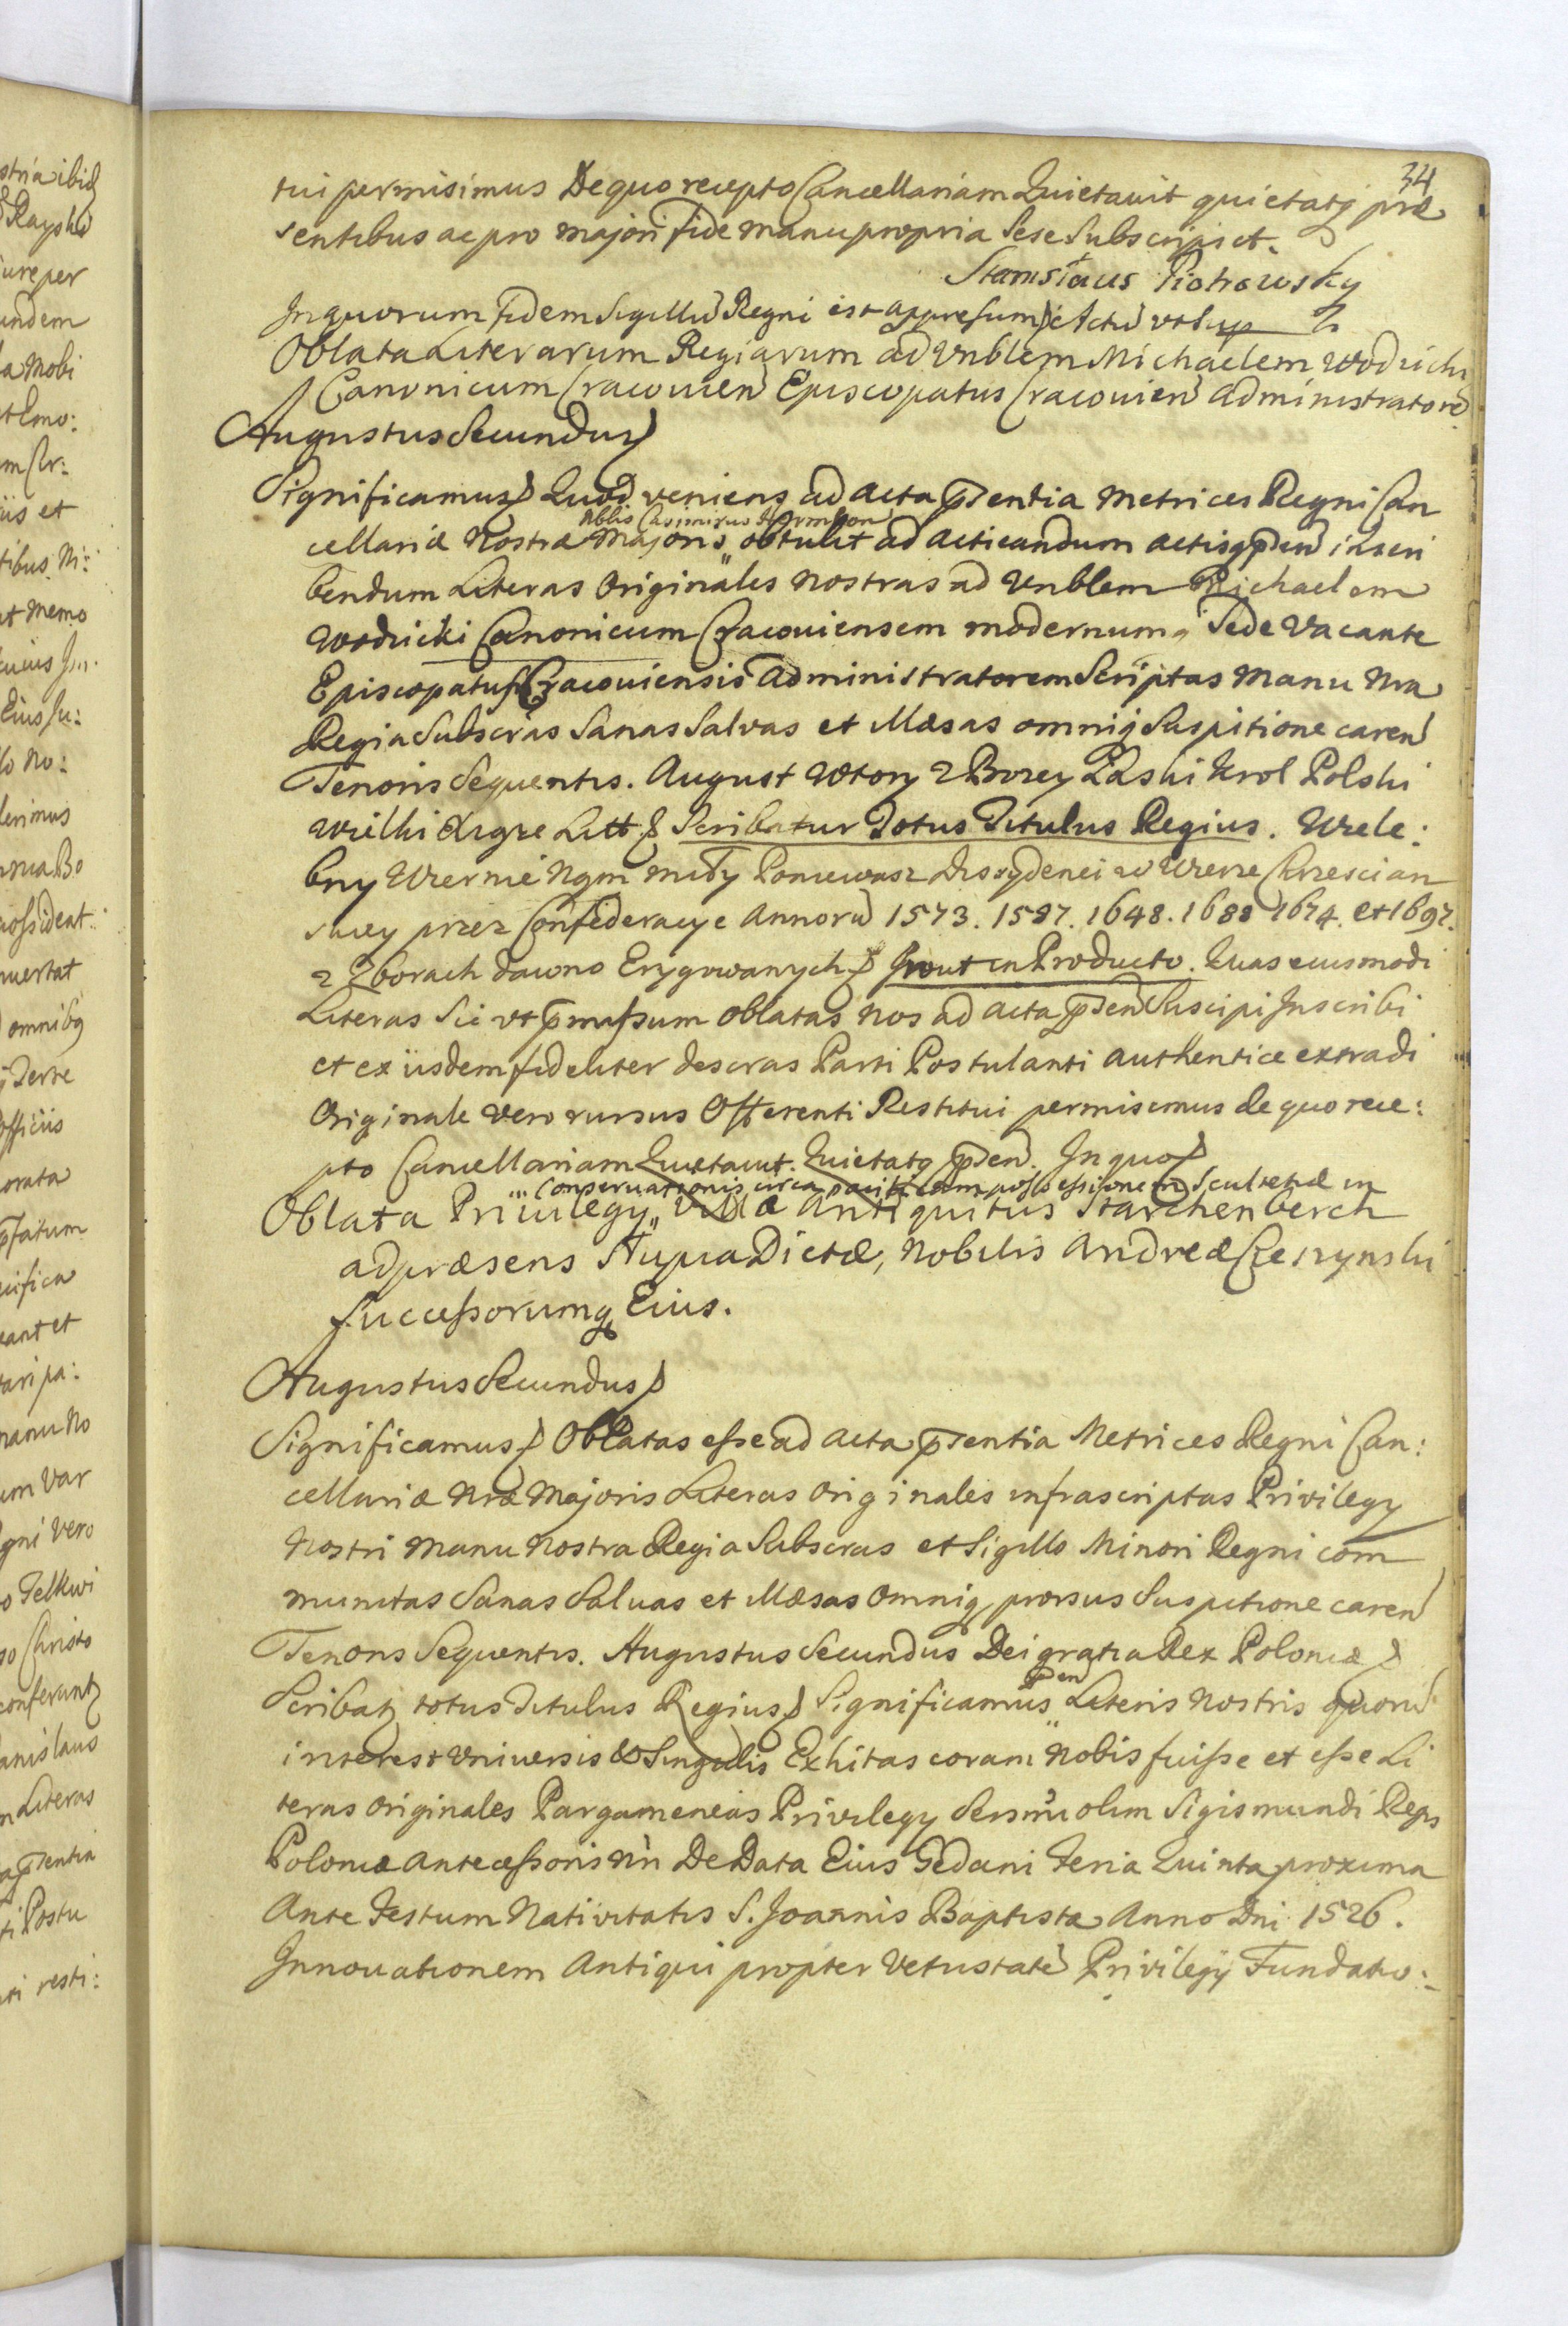 34
tui permisimus De quo recepto Cancellariam Quietavit quietatq præ
sentibus ac pro majori fide manu propria Sese Subscripsit.
Stanisłaus Piotrowsky
In quorum fidem Sigillũ Regni est appresum Actũ vt sup
Oblata Literarum Regiarum ad Vnblem Michaelem Wodzicki
Canonicum Cracouien Episcopatus Cracouien administratorẽ
Augustus Secundus
Significamus Quod veniens ad acta p̃sentia Metrices Regni Can
Nblis Casimirus
cellariæ Nostræ Majoris obtulit ad acticandum actisq p̃sen inscri
bendum Literas Originales Nostras ad Vnblem Michaelem
Wodzicki Canonicum Cracouiensem modernum Sede Vacante
Episcopatus Cracouiensis administratorem Scriptas Manu Nra
Regia Subscras Sanas Salvas et Illæsas omniq Suspitione caren
Tenoris Sequentis. August Wtory z Bozey Łaski Krol Polski
Wielki Xiąze Litt Scribatur Totus Titulus Regius. Wiele:
bny Wiernie Nam miły Poniewasz Dissydenci w Wierze Chrzescian
skiey przez Confederacye Annorũ 1573. 1587. 1648. 1688 1674. et 1697.
z Zborach dawno Erygowanych Prout in Producto. Quas eiusmodi
Literas Sic vt p̃missum oblatas nos ad acta p̃sen Suscipi Inscribi
et ex iisdem fideliter descras Parti Postulanti authentice extradi
Originale vero rursus Offerenti Restitui permisimus de quo rece:
pto Cancellariam Quietauit. Quietatq p̃sen. In quor
Conservationis circa pacificam possessionem Scultetiæ in
Oblata Privilegy Villæ antiquitus Starchenberch
ad præsens Slupia Dictæ, Nobilis Andreæ
Successorumq Eius.
Augustus Secundus
Significamus Oblatas esse ad acta p̃sentia Metrices Regni Can:
cellariæ Nræ Majoris Literas Originales infrascriptas Privilegy
Nostri Manu Nostra Regia Subscras et Sigillo Minori Regni com
munitas Sanas Saluas et Illæsas Omniq prorsus Suspitione caren
Tenoris Sequentis. Augustus Secundus Dei gratia Rex Poloniæ
p̃sen
Scribatq totus Titulus Regius Significamus Literis Nostris quorũ
interest Vniuersis et Singulis Exhitas coram Nobis fuisse et esse Li
teras Originales Pargameneas Privilegy Sersmi olim Sigismundi Regis
Poloniæ Antecessoris Nri De Data Eius Gedani Feria Quinta proxima
Ante Festum Nativitatis S. Joannis Baptistæ Anno Dni 1526.
Innouationem Antiqui propter Vetustatẽ Privilegij Fundatio: